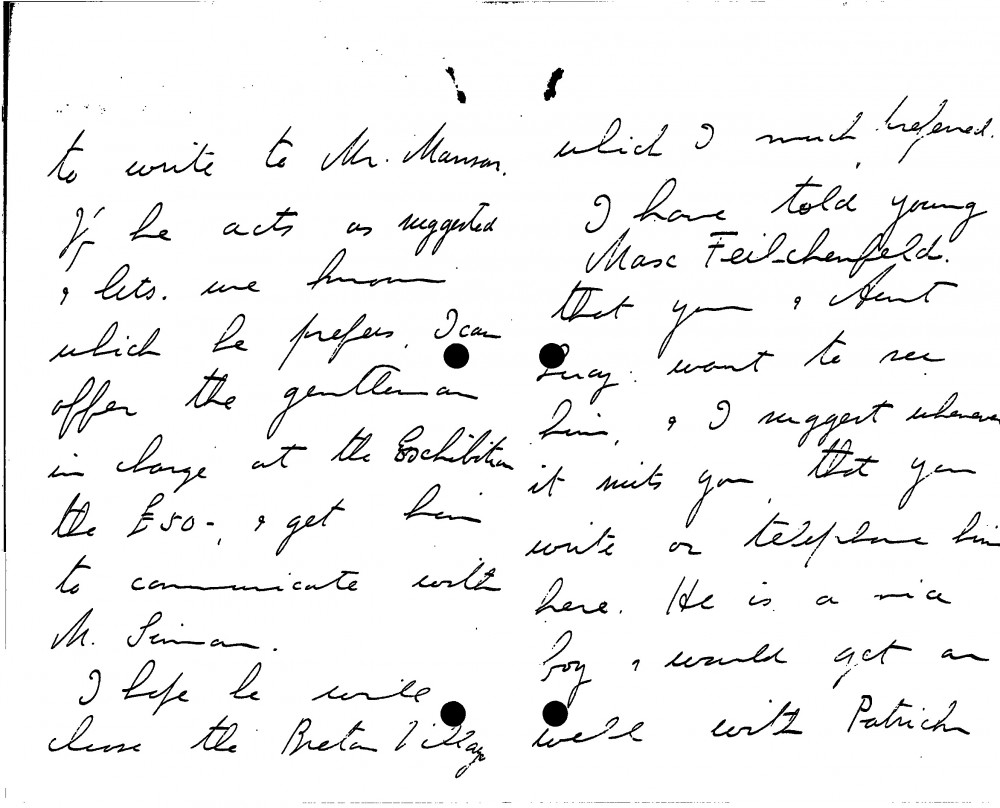 to write to Mr. Manson.
If he acts as suggested
& lets me know
which he prefers, I can
offer the gentleman
in charge at the Exhibition
the £50-, & get him
to communicate with
M. Simon.
I hope he will
choose the Breton Village
which I much preferred.
I have told young
Max Feilchenfeld.
that you & Aunt
Lucy want to see
him, & I suggest whenever
it suits you, that you
write or telephone him
here. He is a nice
boy & would get on
well with Patrick